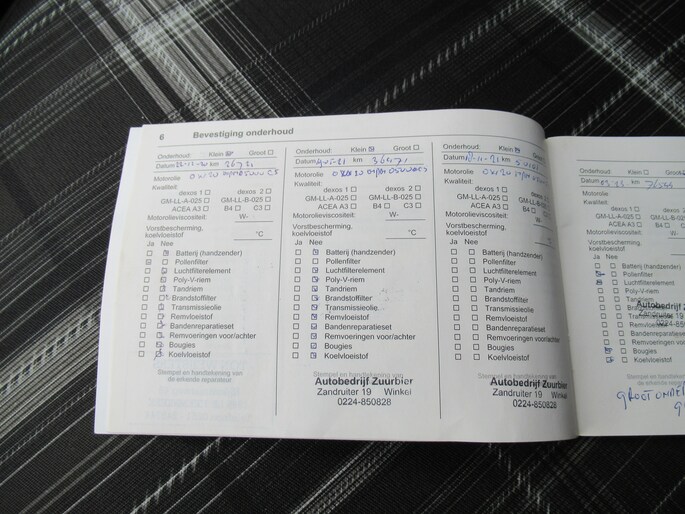 6 Bevestiging onderhoud
Onderhoud: Klein Groot
Datum km
Motorolie
Kwaliteit:
dexos 1 dexos 2
GM-LL-A-025 GM-LL-B-025
ACEA A3 B4 C3
Motorolieviscositeit: W-
Vorstbescherming,
koelvloeistof °C
Ja Nee
Batterij (handzender)
Pollenfilter
Luchtfilterelement
Poly-V-riem
Tandriem
Brandstoffilter
Transmissieolie
Remvloeistof
Bandenreparatieset
Remvoeringen voor/achter
Bougies
Koelvloeistof
Stempel en handtekening van
de erkende reparateur:
Onderhoud: Klein Groot
Datum km
Motorolie
Kwaliteit:
dexos 1 dexos 2
GM-LL-A-025 GM-LL-B-025
ACEA A3 B4 C3
Motorolieviscositeit: W-
Vorstbescherming,
koelvloeistof °C
Ja Nee
Batterij (handzender)
Pollenfilter
Luchtfilterelement
Poly-V-riem
Tandriem
Brandstoffilter
Transmissieolie
Remvloeistof
Bandenreparatieset
Remvoeringen voor/achter
Bougies
Koelvloeistof
Stempel en handtekening van
Autobedrijf Zuurbier
Zandruiter 19 Winkel
0224-850828
Onderhoud: Klein Groot
Datum km
Motorolie
Kwaliteit:
dexos 1 dexos 2
GM-LL-A-025 GM-LL-B-025
ACEA A3 B4 C3
Motorolieviscositeit: W-
Vorstbescherming,
koelvloeistof °C
Ja Nee
Batterij (handzender)
Pollenfilter
Luchtfilterelement
Poly-V-riem
Tandriem
Brandstoffilter
Transmissieolie
Remvloeistof
Bandenreparatieset
Remvoeringen voor/achter
Bougies
Koelvloeistof
Stempel en handtekening van
Autobedrijf Zuurbier
Zandruiter 19 Winkel
0224-850828
Onderhoud: Klein Groot
Datum km
Motorolie
Kwaliteit:
dexos 1 dexos 2
GM-LL-A-025 GM-LL-B-025
ACEA A3 B4 C3
Motorolieviscositeit: W-
Vorstbescherming,
koelvloeistof °C
Ja Nee
Batterij (handzender)
Pollenfilter
Luchtfilterelement
Poly-V-riem
Tandriem
Autobedrijf
Zandruiter 19
Remvloeistof
Bandenreparatieset
Remvoeringen voor/achter
Bougies
Koelvloeistof
GROOT